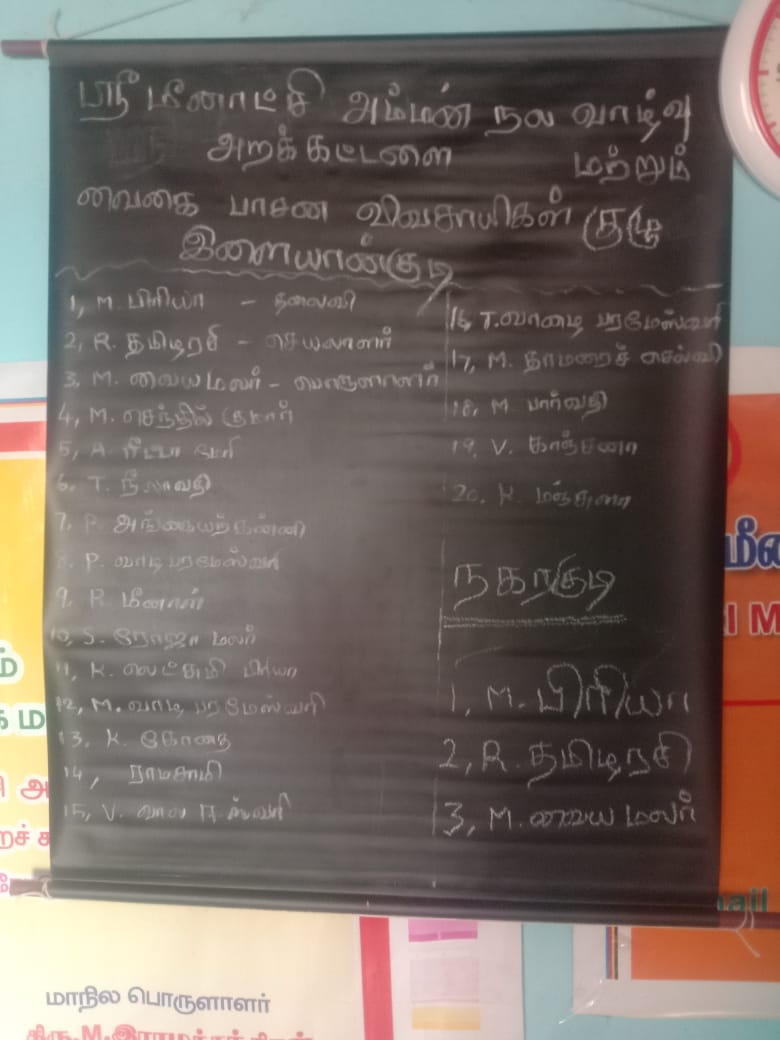 ஸ்ரீ மீனாட்சி அம்மன் நல வாழ்வு
அறக்கட்டளை மற்றும்
வைகை பாசன விவசாயிகள் குழு
இளையான்குடி
1, M. பிரியா - தலைவி
2, R. தமிழரசி - செயலாளர்
3, M. வையமலர் - பொருளாளர்
4, M. செந்தில் குமார்
5, A.
6. T. நீலாவதி
7, P. அங்கையற்கண்ணி
8. P. வாடி பரமேஸ்வரி
9, R. மீனாள்
10, S. ரோஜா மலர்
11, K. லெட்சுமி பிரியா
12, M. வாடி பரமேஸ்வரி
13. K. கோதை
14, ராமசாமி
15, V.
16, T. பரமேஸ்வரி
17, M. தாமரைச் செல்வி
18, M. பார்வதி
19, V. காஞ்சனா
20. K. மஞ்சுளா
நகரகுடி
1, M. பிரியா
2, R. தமிழரசி
3, M. வையமலர்
மீன
I M
ம்
மாநில பொருளாளர்